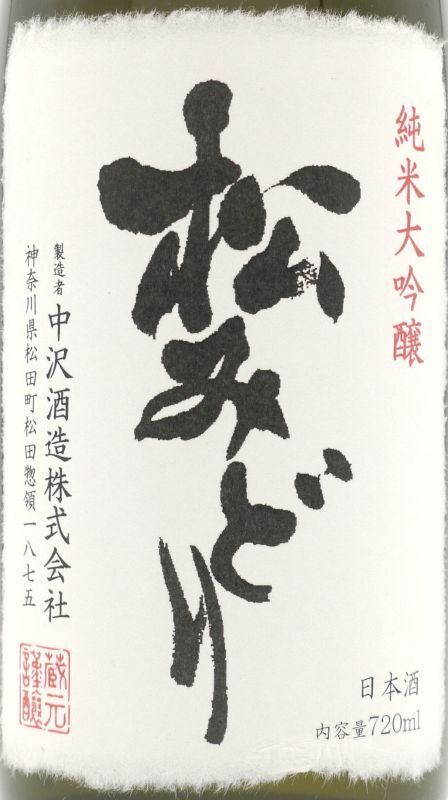 純米大吟醸
松みどり
製造者
中沢酒造株式会社
神奈川県松田町松田惣領一八七五
蔵元
謹醸
日本酒
内容量720ml